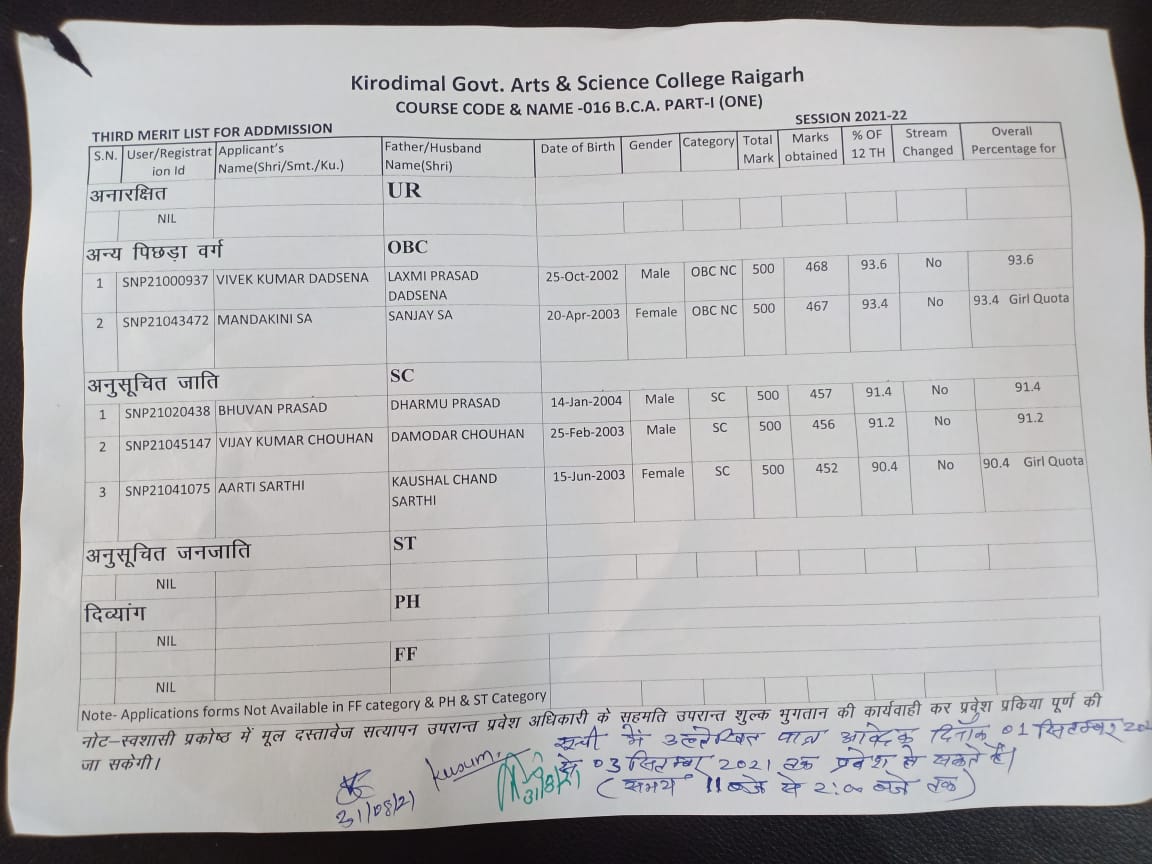 Kirodimal Govt. Arts & Science College Raigarh
COURSE CODE & NAME -016 B.C.A. PART-I (ONE)
THIRD MERIT LIST FOR ADDMISSION SESSION 2021-22
S.N. User/Registrat ion Id Applicant's Name(Shri/Smt./Ku.) Father/Husband Name(Shri) Date of Birth Gender Category Total Mark Marks obtained % OF 12 TH Stream Changed Overall Percentage for
अनारक्षित UR
NIL
अन्य पिछड़ा वर्ग OBC
1 SNP21000937 VIVEK KUMAR DADSENA LAXMI PRASAD DADSENA 25-Oct-2002 Male OBC NC 500 468 93.6 No 93.6
2 SNP21043472 MANDAKINI SA SANJAY SA 20-Apr-2003 Female OBC NC 500 467 93.4 No 93.4 Girl Quota
अनुसूचित जाति SC
1 SNP21020438 BHUVAN PRASAD DHARMU PRASAD 14-Jan-2004 Male SC 500 457 91.4 No 91.4
2 SNP21045147 VIJAY KUMAR CHOUHAN DAMODAR CHOUHAN 25-Feb-2003 Male SC 500 456 91.2 No 91.2
3 SNP21041075 AARTI SARTHI KAUSHAL CHAND SARTHI 15-Jun-2003 Female SC 500 452 90.4 No 90.4 Girl Quota
अनुसूचित जनजाति ST
NIL
दिव्यांग PH
NIL
FF
NIL
Note- Applications forms Not Available in FF category & PH & ST Category
नोट–स्वशासी प्रकोष्ठ में मूल दस्तावेज सत्यापन उपरान्त प्रवेश अधिकारी के सहमति उपरान्त शुल्क भुगतान की कार्यवाही कर प्रवेश प्रकिया पूर्ण की
जा सकेगी।
सूची में उल्लेखित पात्र आवेदक दिनाँक 01 सितम्बर
से 03 सितम्बर 2021 तक प्रवेश ले सकते है।
(समय 11 बजे से 2:00 बजे तक)
Kusum
31/08/21
31/8/21